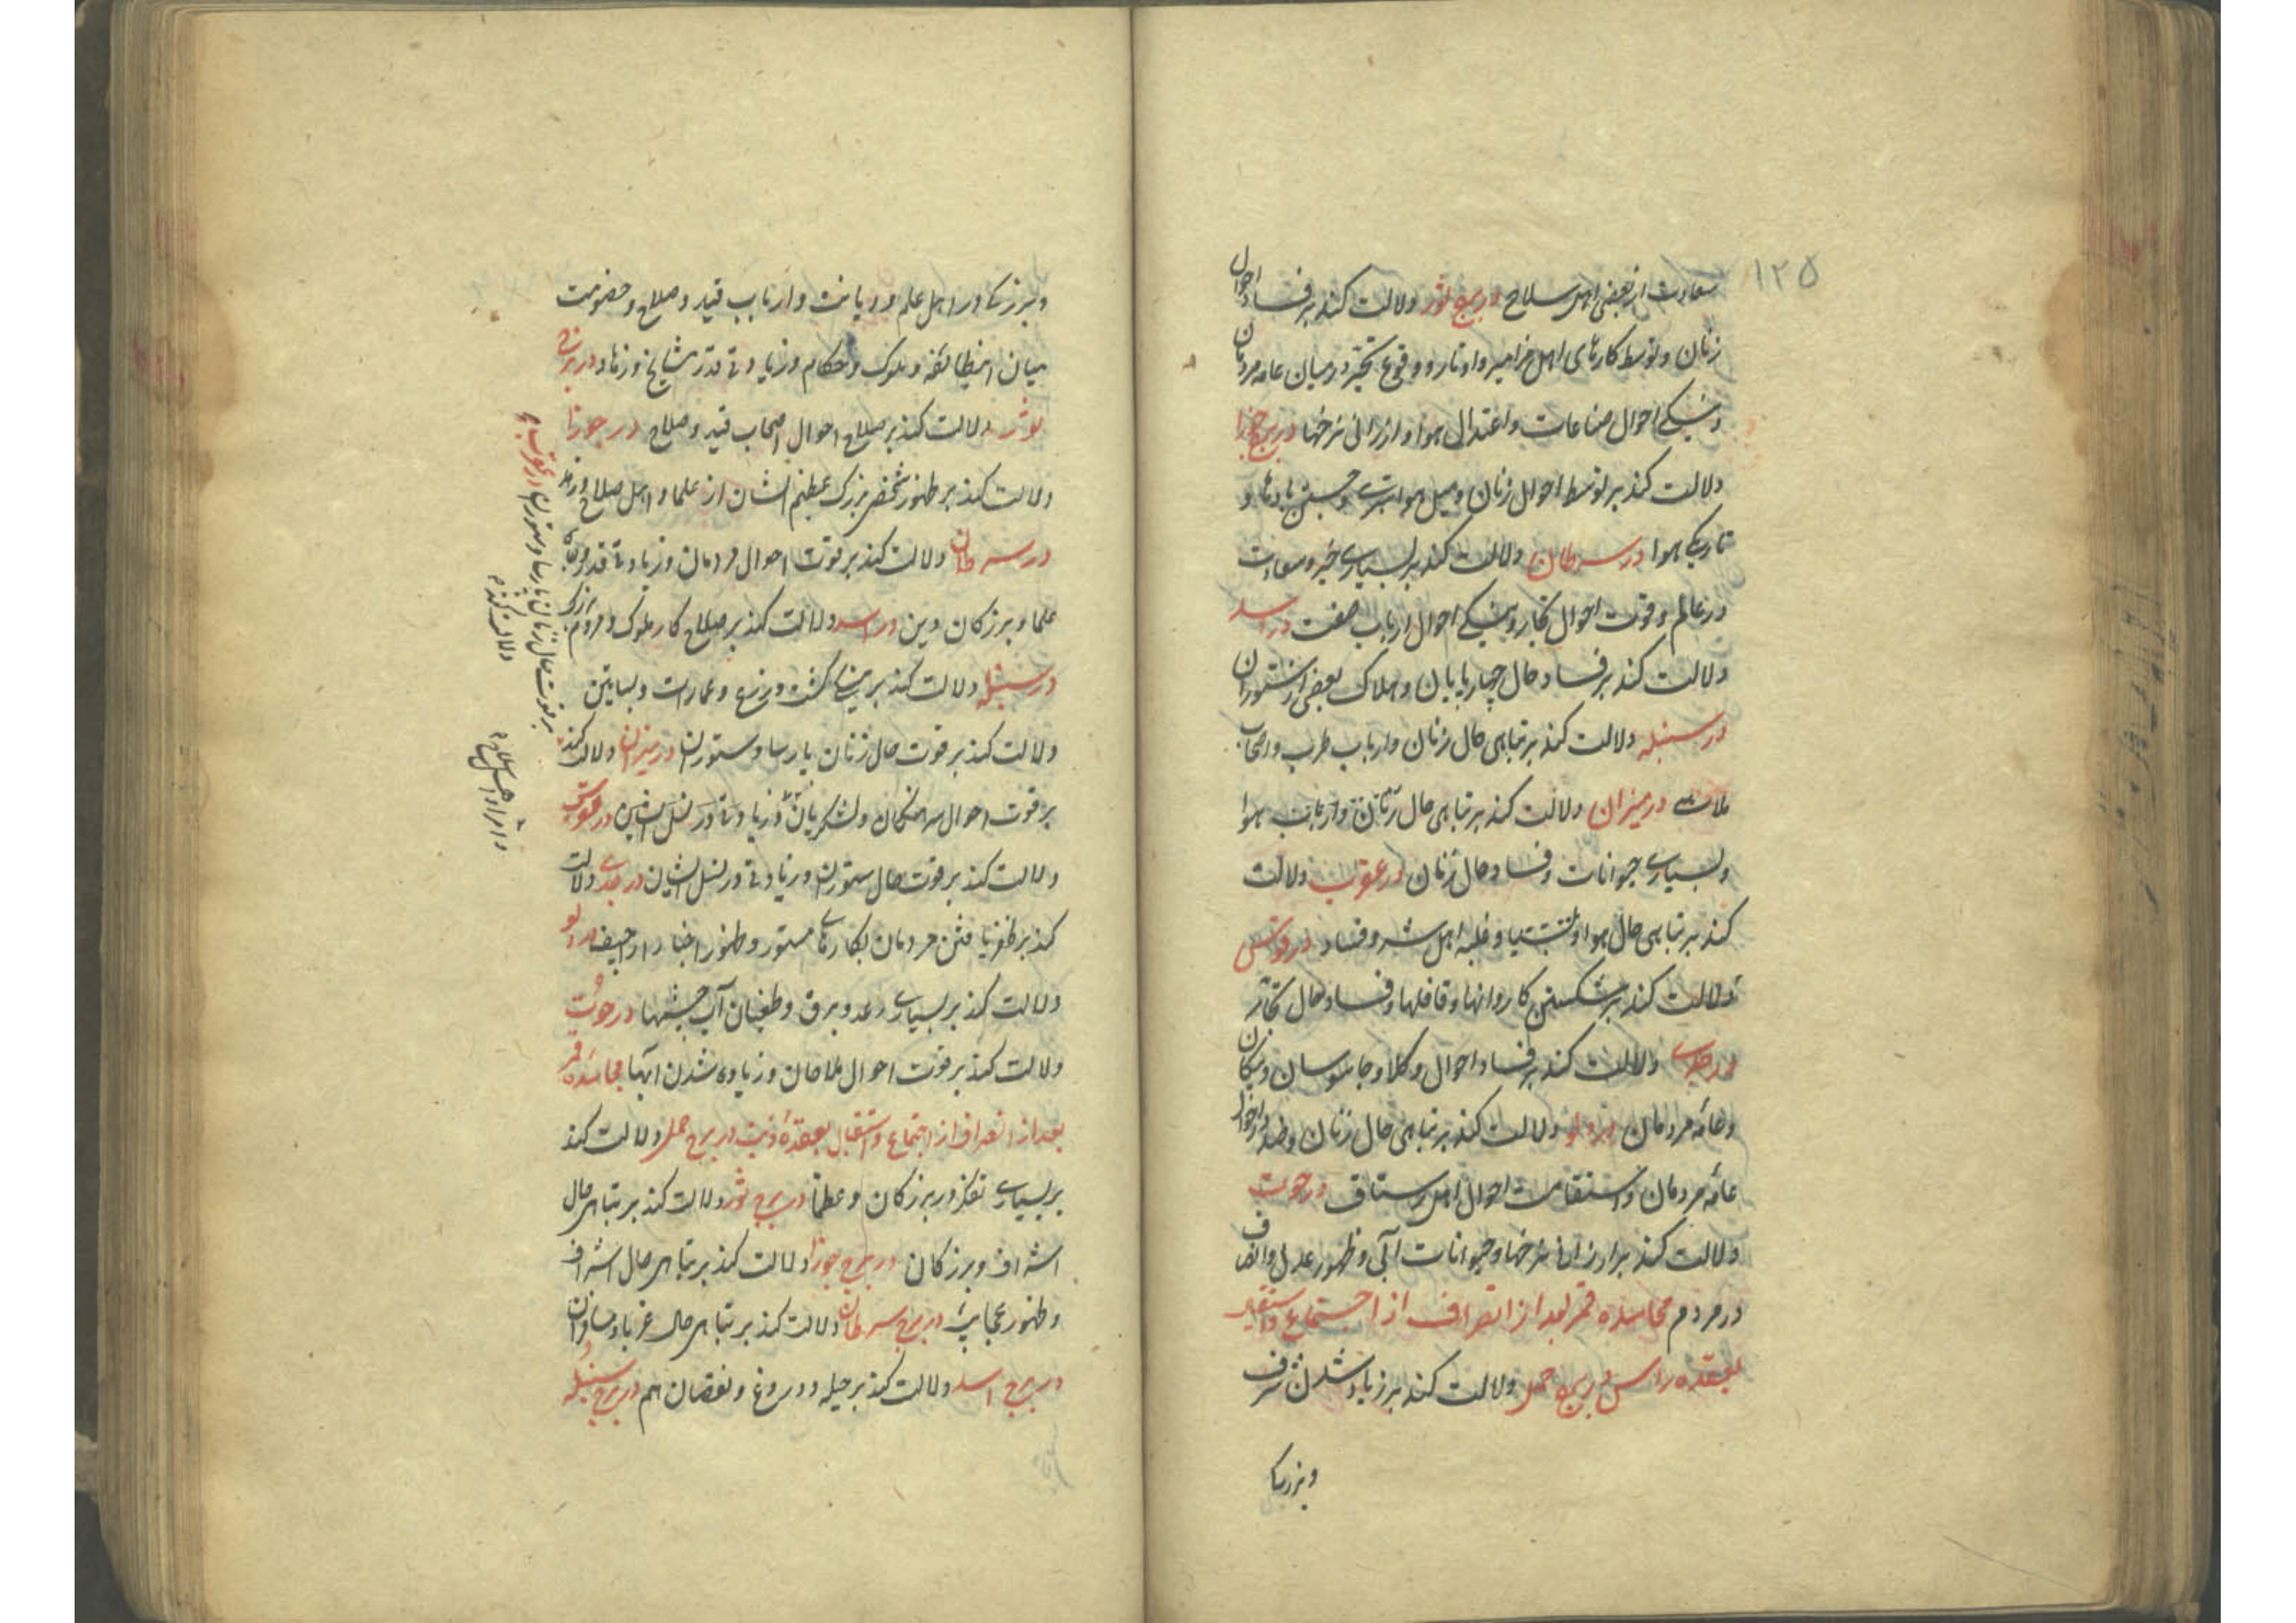 ۱۲۵
سعادت از بعضی اهل سلاح در برج ثور دلالت کند بر فساد احوال
زنان و توسط کارهای اهل مزامیر و اوتار و وقوع تحیّر در میان عامه مردمان
و نیکی احوال صناعات و اعتدال هوا و ارزانی نرخها در برج جوزا
دلالت کند بر توسط احوال زنان و میل هوا بسردی و جستن بادها و
تاریکی هوا در سرطان دلالت کند بر بسیاری خیر و سعادت
در عالم و قوت احوال تجار و نیکی احوال ارباب صنعت در اسد
دلالت کند بر فساد حال چهارپایان و هلاک بعضی از ستوران
در سنبله دلالت کند بر تباهی حال زنان و ارباب طرب و اصحاب
ملاهی در میزان دلالت کند بر تباهی حال زنان و ارباب هوا
و بسیاری حیوانات و فساد حال زنان در عقرب دلالت
کند بر تباهی حال هوا و غلبه اهل شر و فساد در قوس
دلالت کند بر شکستن کاروانها و قافلها و فساد حال تجار
در جدی دلالت کند بر فساد احوال وکلا و جاسوسان و پیکان
و عامه مردمان در دلو دلالت کند بر تباهی حال زنان و احوال
عامه مردمان و استقامت احوال اهل رستاق در حوت
دلالت کند بر ارزانی نرخها و حیوانات آبی و ظهور عدل و انصاف
در مردم مجاسده قمر بعد از انصراف از اجتماع و استقبال
بعقده راس در برج حمل دلالت کند بر زیاد شدن شرف
و بزرگی
و بزرگی در اهل علم و دیانت و ارباب قید و صلاح و خصومت
میان این طائفه و ملوک و حکام و زیادتی قدر مشایخ و زهاد در برج
ثور دلالت کند بر صلاح احوال اصحاب قید و صلاح در جوزا
دلالت کند بر ظهور شخصی بزرگ عظیم الشان از علما و اهل صلاح و زهد
در سرطان دلالت کند بر قوت احوال مردمان و زیادتی قدر
علما و بزرکان دین در اسد دلالت کند بر صلاح کار ملوک و مردم بزرک
در سنبله دلالت کند بر کشت و زرع و عمارت و بساتین
دلالت کند بر قوت حال زنان پارسا و ستوران در میزان دلالت کند
بر قوت احوال سرهنکان و لشکریان و زیادتی در نسل ایشان در قوس
دلالت کند بر قوت حال ستوران و زیادتی در نسل ایشان در جدی دلالت
کند بر ظفر یافتن مردمان بکارهای مستور و ظهور اخبار اراجیف در دلو
دلالت کند بر بسیاری رعد و برق و طغیان آب چشمها در حوت
دلالت کند بر قوت احوال ملاحان و زیاده شدن آبها مجاسده قمر
بعد از انصراف از اجتماع و استقبال بعقده ذنب در برج حمل دلالت کند
بر بسیاری تفکر در بزرکان و عظما در برج ثور دلالت کند بر تباهی حال
اشراف و بزرکان در برج جوزا دلالت کند بر تباهی حال اشراف
و ظهور عجایب در برج سرطان دلالت کند بر تباهی حال غربا و مسافران
در برج اسد دلالت کند بر حیله و دروغ و نقصان هم در برج سنبله
در عقرب
بر قوت حال زنان پارسا و ستوران
دلالت کند